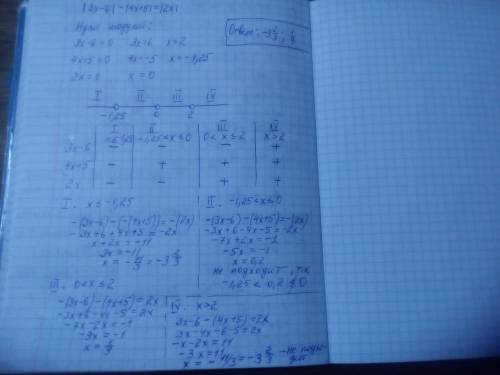 |3x-6| - |4x+5| = |2x|
Нули модулей:
3x-6=0 3x=6 x=2
4x+5=0 4x=-5 x=-1,25
2x=0 x=0
Ответ: -3 2/3; 1/9
I II III IV
-1,25 0 2
I II III IV
x≤-1,25 -1,25<x≤0 0<x≤2 x>2
3x-6 - - - +
4x+5 - + + +
2x - - + +
I. x≤-1,25
-(3x-6)-(-(4x+5))=-(2x)
-3x+6+4x+5=-2x
x+2x=-11
3x=-11
x=-11/3=-3 2/3
II. -1,25<x≤0
-(3x-6)-(4x+5)=-(2x)
-3x+6-4x-5=-2x
-7x+2x=-1
-5x=-1
x=0,2
не подходит, т.к
-1,25<0,2≤0
III. 0<x≤2
-(3x-6)-(4x+5)=2x
-3x+6-4x-5=2x
-7x-2x=-1
-9x=-1
x=1/9
IV. x>2
3x-6-(4x+5)=2x
3x-4x-6-5=2x
-x-2x=11
-3x=11
x=-11/3=-3 2/3 - не подходит